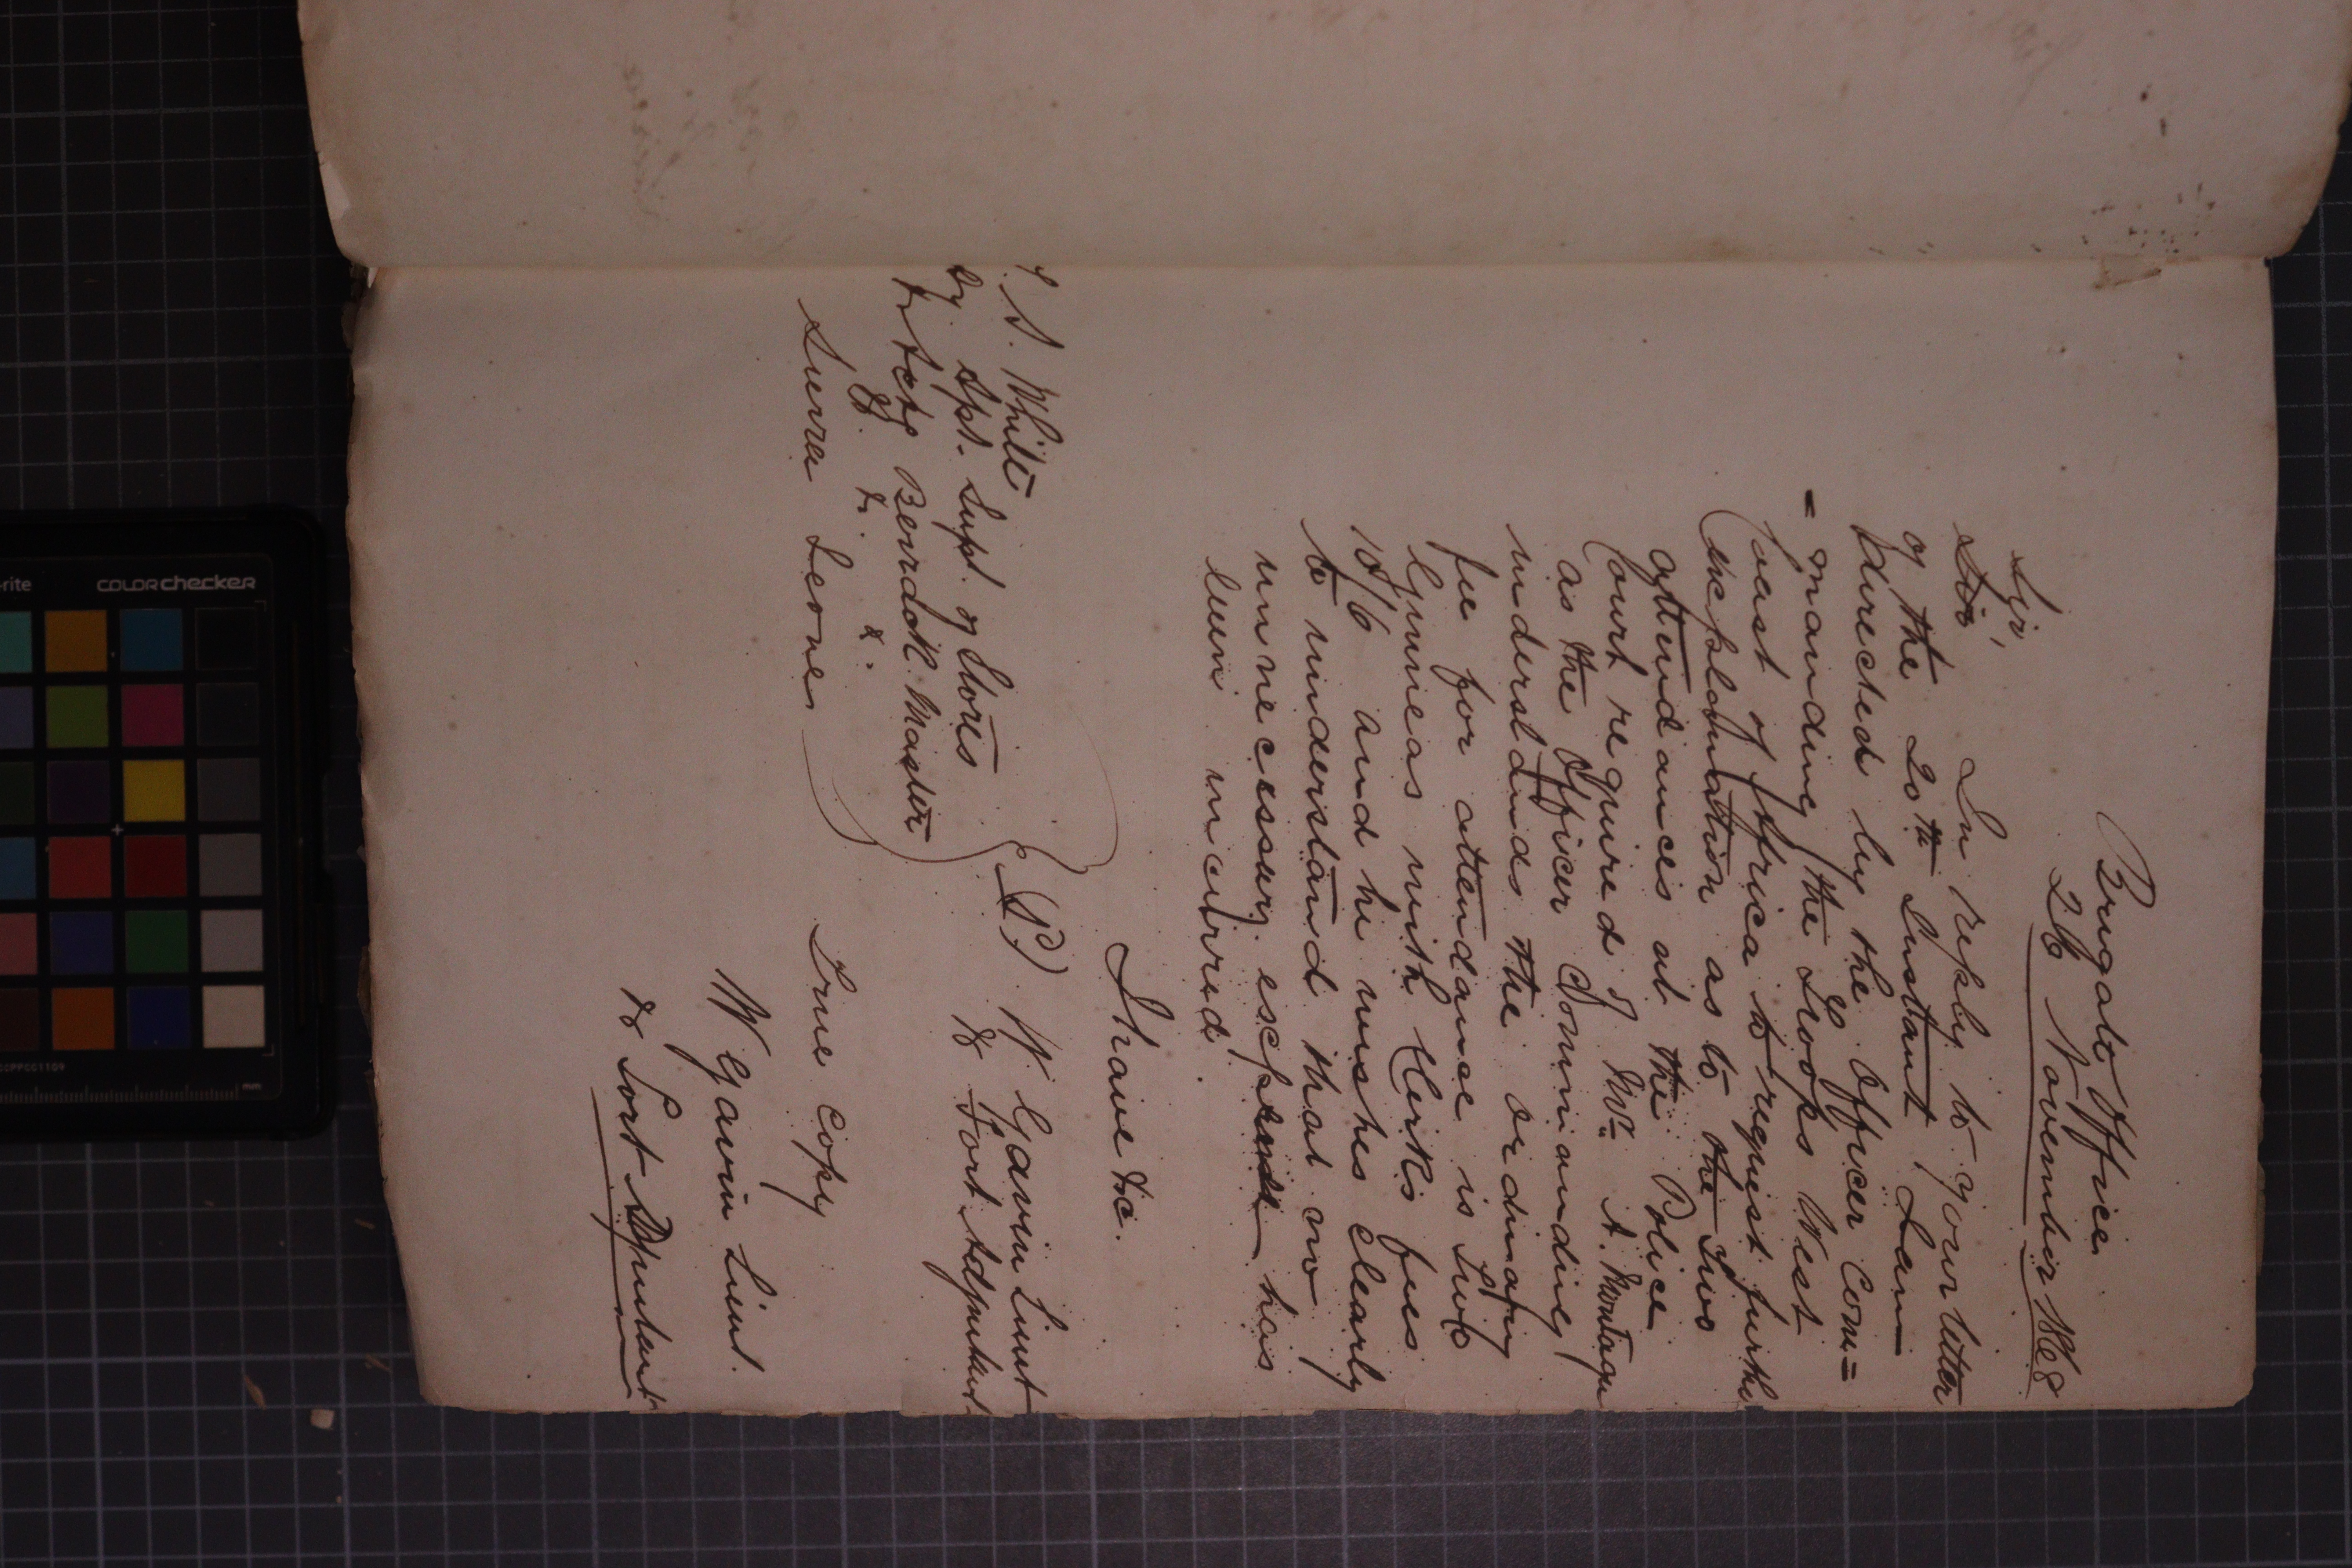 Brigade Office
26 November 1868
Sir,
In reply to your letter
of the 20th Instant I am
directed by the Officer Com=
=manding the Troops West
Coast of Africa to request further
explanation as to the Two
attendances at the Police
Court required of Mr. A. Montague
as the Officer Commanding
understands the ordinary
fee for attendance is Two
Guineas with Clerks fees
10/6 and he wishes clearly
to understand that no
unnecessary expense has
been incurred.
I have &c.
(S) W Gavin Lieut
Fort Adjutant
S. White
Dy. Apt. Supt. of Stores
& Actg Barrack Master
&. &. &.
Sierra Leone
True Copy
W Gavin Lieut.
Fort Adjutant